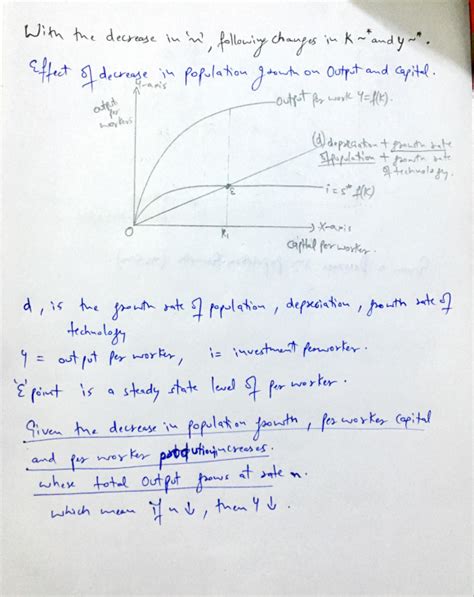 With the decrease in 'n', following changes in K~* and y~*.
Effect of decrease in population growth on Output and Capital.
y-axis
output
per
workers
output per work Y=f(K).
(d) depreciation + growth rate
of population + growth rate
of technology.
E
i = s* f(K)
O
K1
x-axis
capital per worker.
d, is the growth rate of population, depreciation, growth rate of
technology
y = output per worker, i= investment per worker.
'E' point is a steady state level of per worker.
Given the decrease in population growth, per worker capital
and per worker production increases.
whose total output grows at rate n.
which mean if n↓, then Y↓.